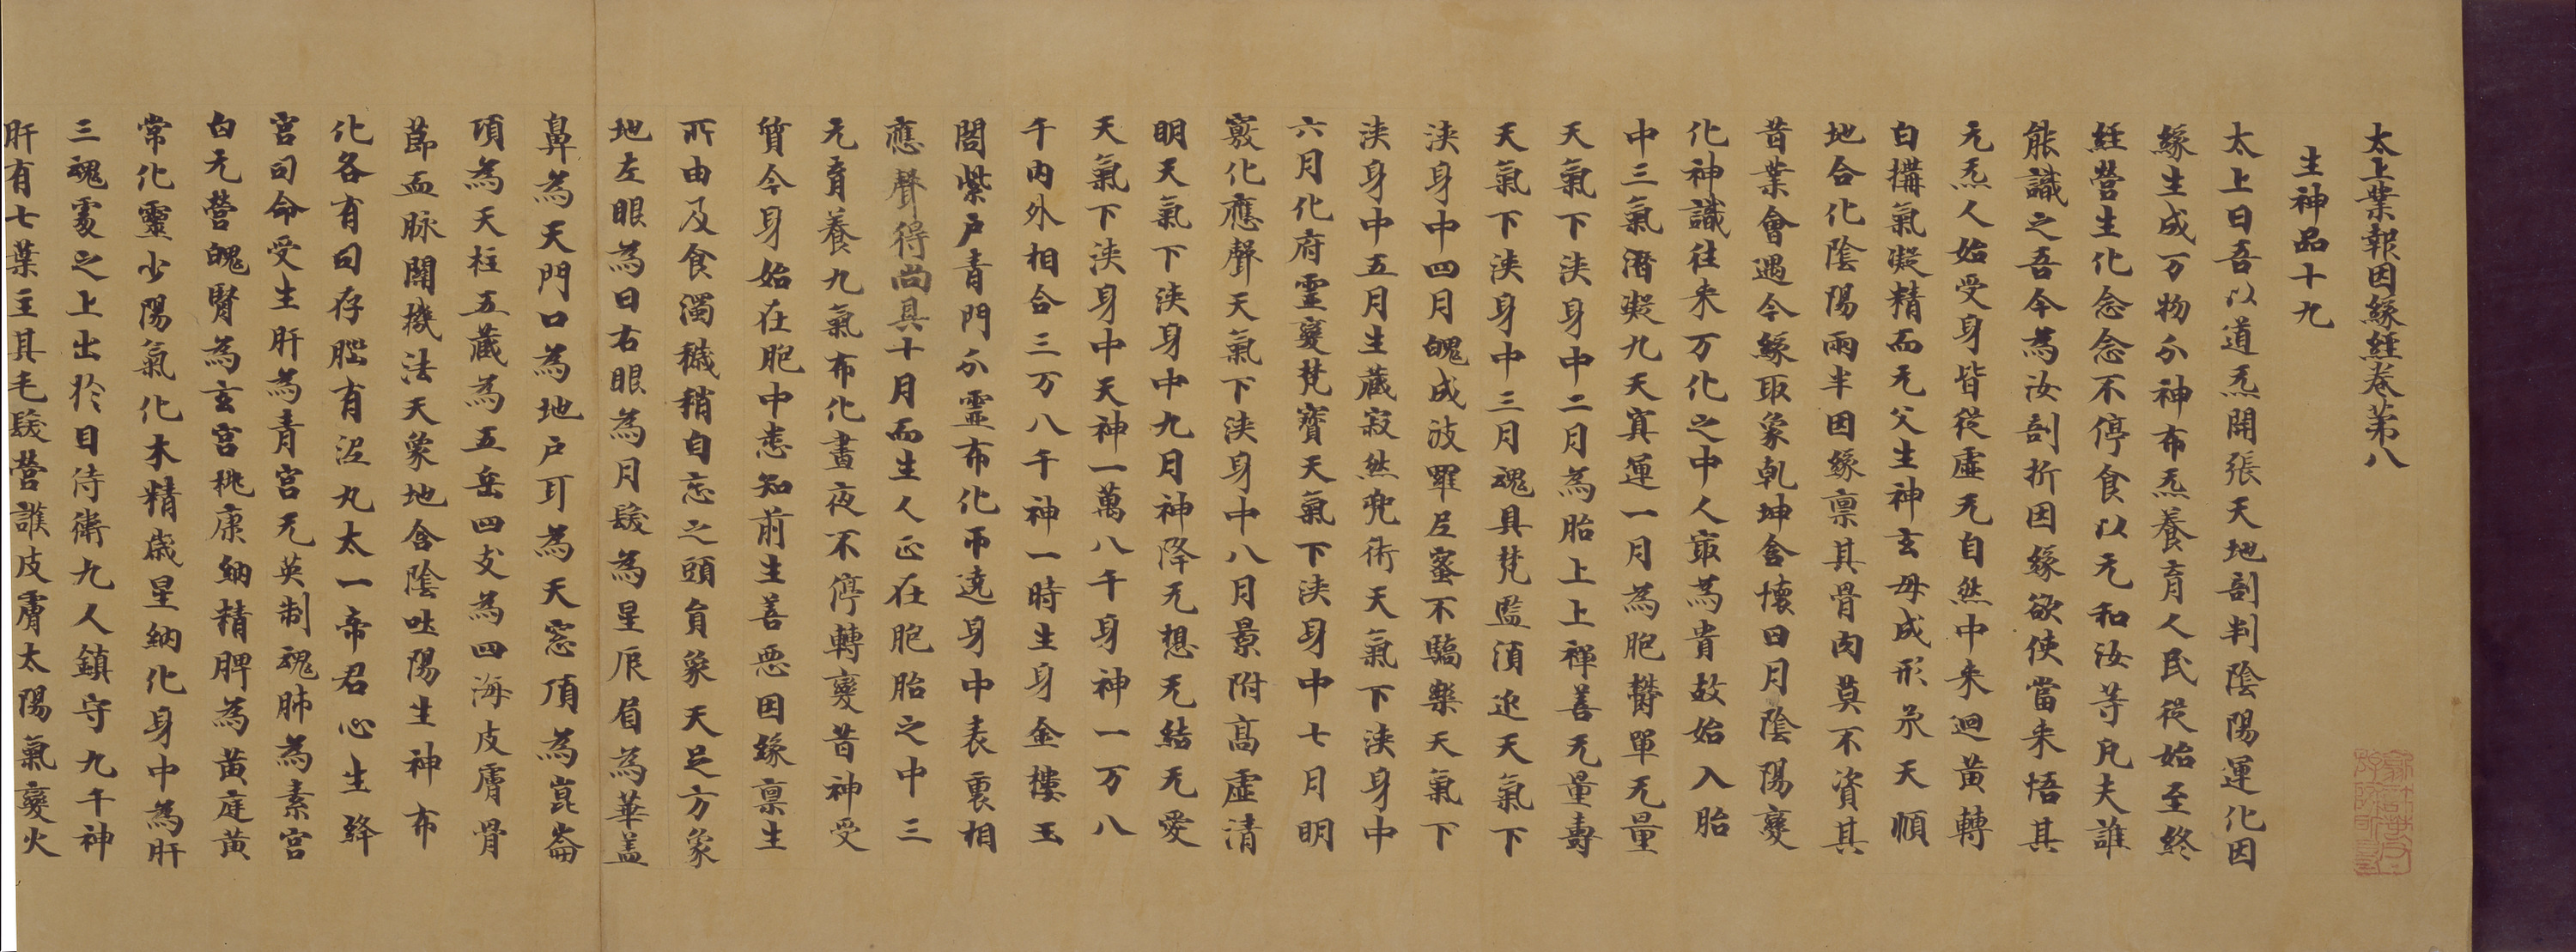 太上業報因緣經卷第八
生神品十九
太上曰吾以道炁開張天地剖判陰陽運化因
緣生成万物分神布炁養育人民從始至終
經營生化念念不停食以元和汝等凡夫誰
能識之吾今為汝剖折因緣欲使當来悟其
元炁人始受身皆從虛无自然中来迴黃轉
白構氣凝精而元父生神玄母成形承天順
地合化陰陽兩半因緣稟其骨肉莫不資其
昔業會遇今緣取象乹坤含懷日月陰陽變
化神識往来万化之中人㝡為貴故始入胎
中三氣潛凝九天寘運一月為胞欝單无量
天氣下浹身中二月為胎上上禪善无量壽
天氣下浹身中三月魂具梵監湏逛天氣下
浹身中四月魄成波羅尼蜜不驕樂天氣下
浹身中五月生蔵寂然兠術天氣下浹身中
六月化府靈變梵寶天氣下浹身中七月明
竅化應聲天氣下浹身中八月景附高虛清
明天氣下浹身中九月神降无想无結无愛
天氣下浹身中天神一萬八千身神一万八
千內外相合三万八千神一時生身金樓玉
閣紫戶青門分靈布化帀遶身中表裏相
應聲得尚具十月而生人正在胞胎之中三
元育養九氣布化晝夜不停轉變昔神受
質今身始在胞中悉知前生善惡因緣稟生
所由及食濁穢稍自忘之頭負象天足方象
地左眼為日右眼為月髮為星辰眉為華盖
鼻為天門口為地戶耳為天窓頂為崑崙
項為天柱五蔵為五岳四支為四海皮膚骨
莭血脉關機法天象地含陰吐陽生神布
化各有司存腦有泥丸太一帝君心生絳
宮司命受生肝為青宮无英制魂肺為素宮
白元營魄腎為玄宮桃康納精脾為黃庭黃
常化靈少陽氣化木精歲星納化身中為肝
三魂䖏之上出扵目侍衛九人鎮守九千神
肝有七葉主其毛髮營護皮膚太陽氣變火